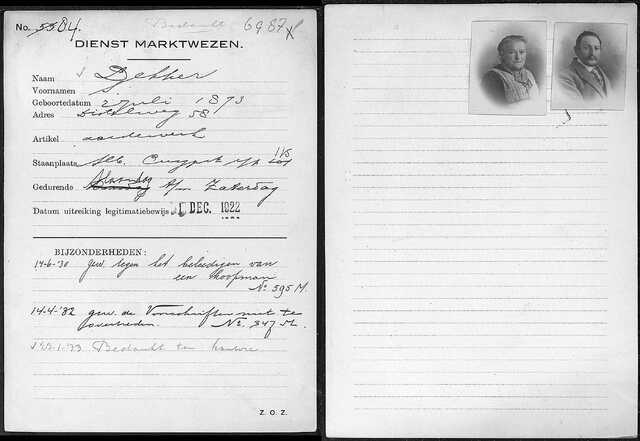 No. 5504. Bedankt 6987
DIENST MARKTWEZEN.
Naam Dekker
Voornamen S.
Geboortedatum 2 Juli 1873
Adres Distelweg 58
Artikel aardewerk
Staanplaats Alb. Cuypstr 115
Gedurende Maandag t/m Zaterdag
Datum uitreiking legitimatiebewijs DEC. 1922
BIJZONDERHEDEN:
14-6-'30 gew. tegen het beleedigen van
een koopman
No 595 M.
14-4-'32 gew. de Voorschriften niet te
overtreden. No. 347 M.
Bedankt
Z. O. Z.